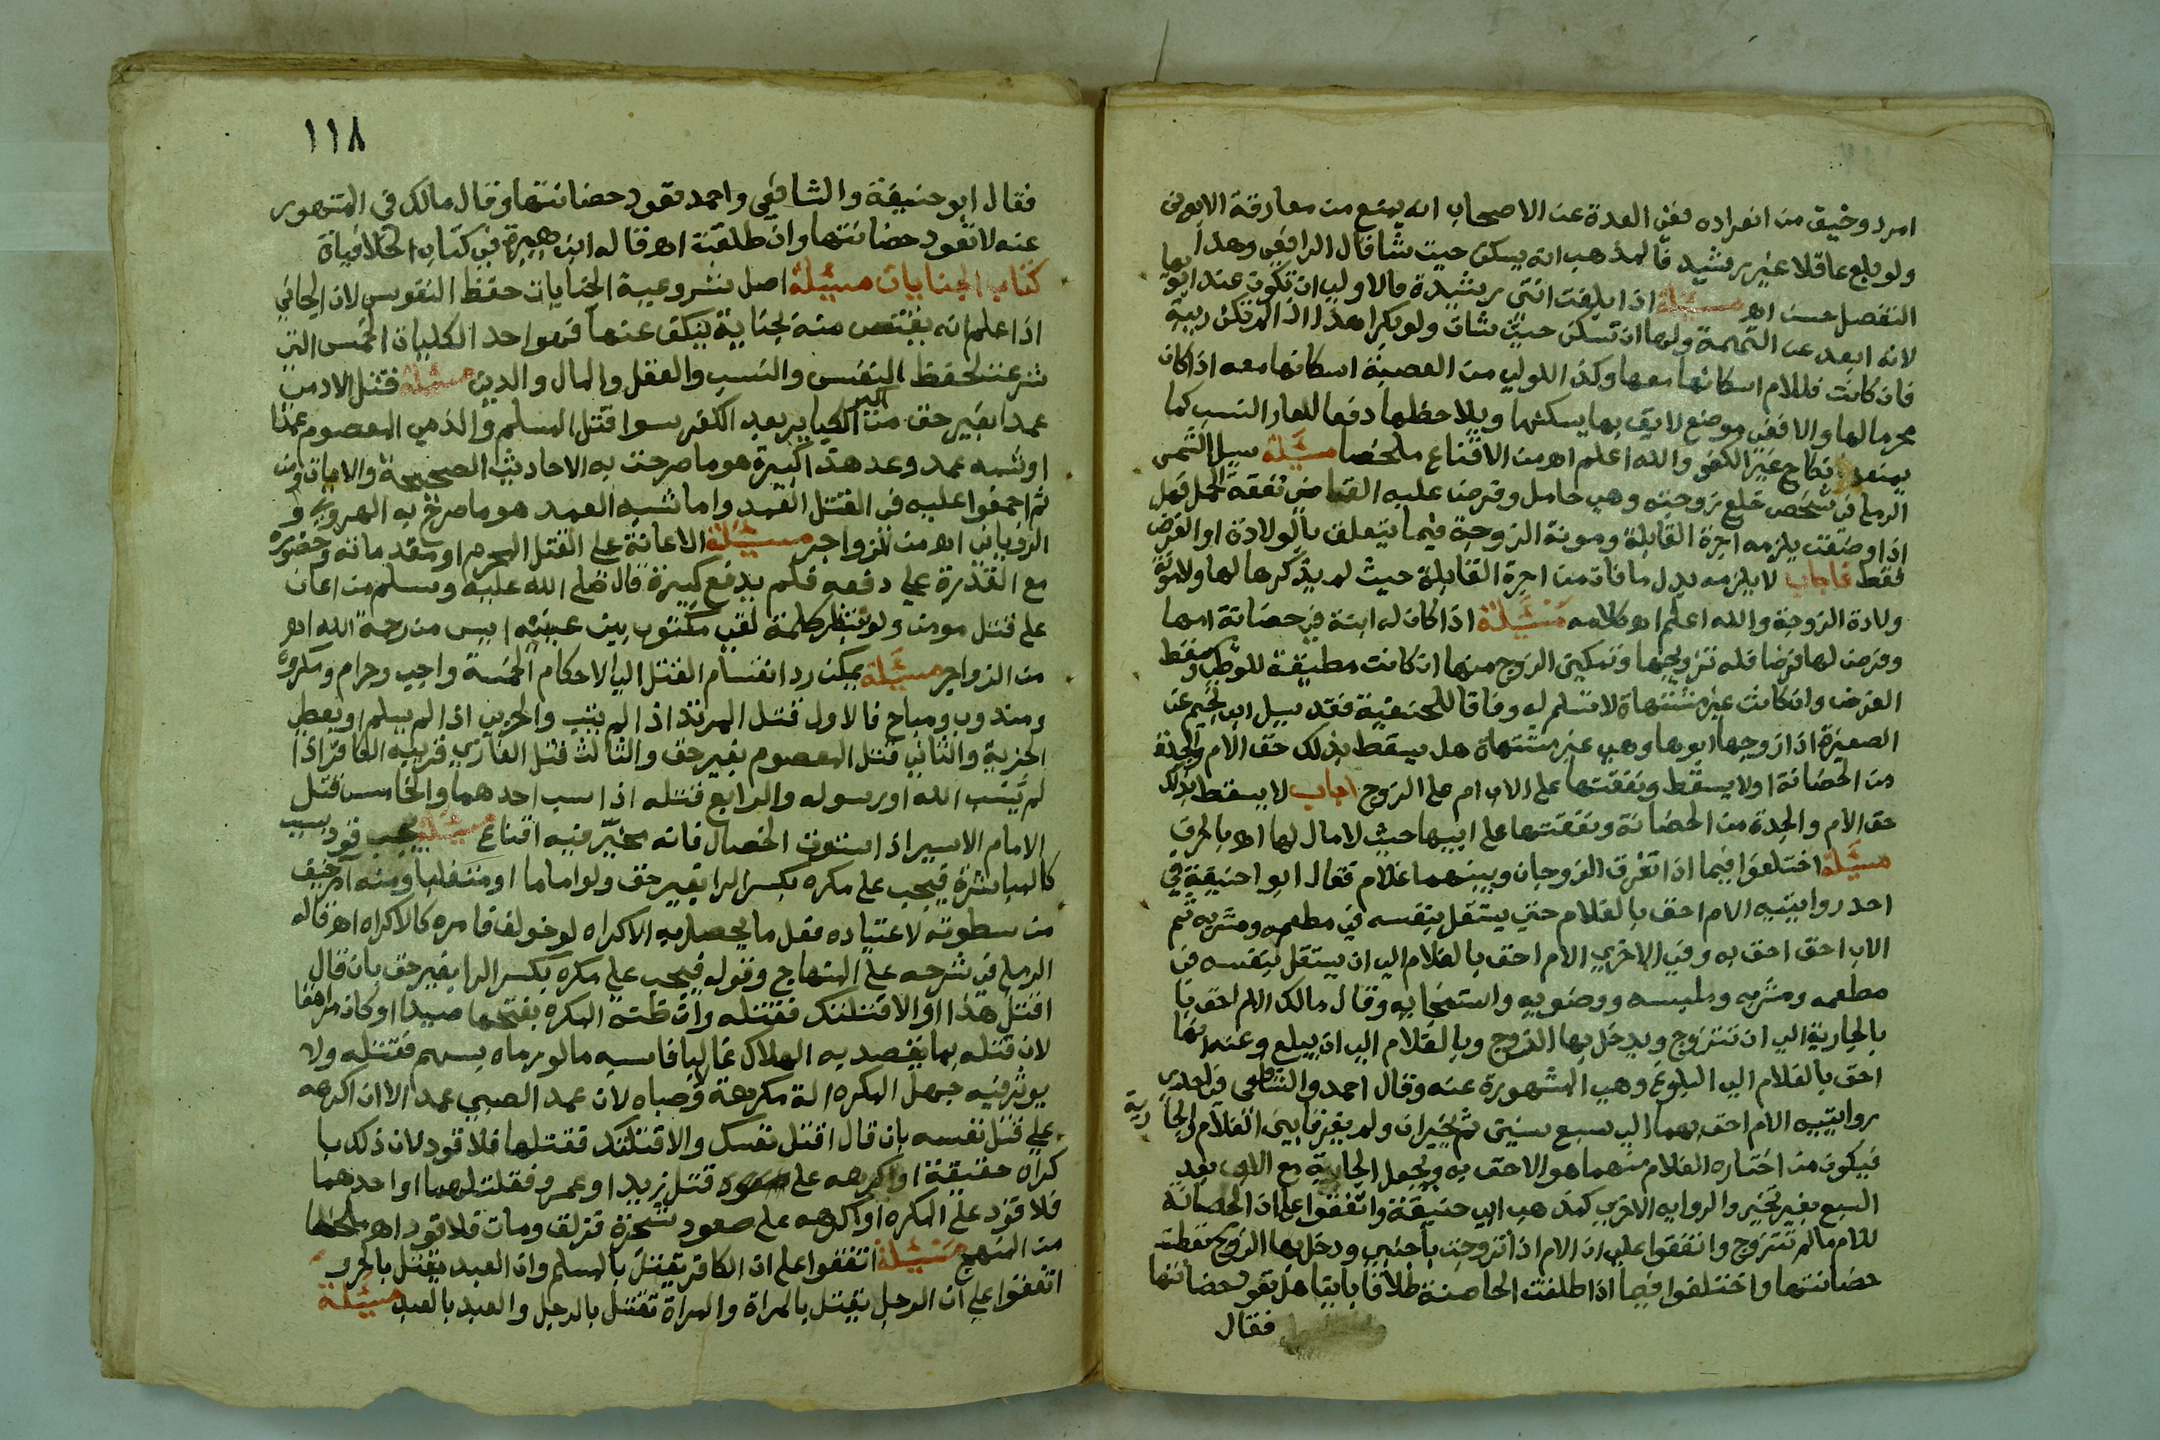 امرد وخيف من انفراده ففي العدة عن الاصحاب انه يمنع من مفارقة الابوين
ولو بلغ عاقلا غير رشيد فالمذهب انه يسكن حيث شا قال الرافعي وهذا
التفصيل حسن اهـ مسئلة اذا بلغت انثى رشيدة فالاولى ان تكون عند ابويها
لانه ابعد عن التهمة ولها ان تسكن حيث شات ولو بكرا هذا اذا لم تكن ريبة
فان كانت فللام اسكانها معها وكذا للولي من العصبة اسكانها معه اذا كان
محرما لها والا ففي موضع لايق بها يسكنها ويلاحظها دفعا للعار النسب كما
يمنعه نكاح غير الكفو والله اعلم اهـ من الاقناع ملخصا مسئلة سيل الشمس
الرملي في شخص خلع زوجته وهي حامل وفرض عليه القاضي نفقة الحمل فهل
اذا وضعت يلزمه اجرة القابلة ومونة الزوجة فيما يتعلق بالولادة او الفرض
فقط فاجاب لا يلزمه بدل ما فات من اجرة القابلة حيث لم يذكرها لها ولا مونة
ولادة الزوجة والله اعلم اهـ كلامه مسئلة اذا كان له ابنة في حضانة امها
وفرض لها فرضا فله تزويجها وتمكين الزوج منها ان كانت مطيقة للوطي وسقط
الفرض وان كانت غير مشتهاة لا تسلم له وفاقا للحنفية فقد سيل ابن نجيم عن
الصغيرة اذا زوجها ابوها وهي غير مشتهاة هل يسقط بذلك حق الام والجدة
من الحضانة اولا يسقط ونفقتها على الاب ام على الزوج اجاب لا يسقط بذلك
حق الام والجدة من الحضانة ونفقتها على ابيها حيث لا مال لها اهـ بالحرف
مسئلة اختلفوا فيما اذا تفرق الزوجان وبينهما غلام فقال ابو احنيفة في
احد روايتيه الام احق بالغلام حتى يستقل بنفسه في مطعمه ومشربه ثم
الاب احق احق به وفي الاخري الام احق بالغلام الى ان يستقل بنفسه في
مطعمه ومشربه وملبسه ووضويه واستنجايه وقال مالك الام احق با
بالجارية الى ان تتزوج ويدخل بها الزوج وبالغلام الى ان يبلغ وعنه انها
احق بالغلام الى البلوغ وهي المشهورة عنه وقال احمد والشافعي في احدي
روايتيه الام احق بهما الى سبع سنين ثم يخيران ولم يفرقا بين الغلام والجارية
فيكون من اختاره الغلام منهما هو الاحق به ويجعل الجارية مع الاب بعد
السبع بغير تخير والروايه الاخري كمذهب ابي حنيفة واتفقوا على ان الحضانة
للام مالم تتزوج واتفقوا على ان الام اذا تزوجت باجنبي ودخل بها الزوج سقطت
حضانتها واختلفوا فيما اذا طلقت الحاضنة طلاقا باينا هل تعود حضانتها
فقال
١١٨
فقال ابو حنيفة والشافعي واحمد تعود حضانتها وقال مالك في المشهور
عنه لا تعود حضانتها وان طلقت اهـ قاله ابن هبيرة في كتاب الخلافياة
كتاب الجنايات مسئلة اصل مشروعية الجنايات حفظ النفوس لان الجاني
اذا علم انه يقتص منه لجناية ينكف عنها فهو احد الكليات الخمس التي
شرعت لحفظ النفس والنسب والعقل والمال والدين مسئلة قتل الادمي
عمدا بغير حق من اكبر الكباير بعد الكفر سوا قتل المسلم والذمي المعصوم عمدا
او شبه عمد وعد هذا كبيرة هو ما صرحت به الاحاديث الصحيحة والايات ومن
ثم اجمعوا عليه في القتل العمد واما شبه العمد هو ما صرح به الهروي و
الروياني اهـ من الزواجر مسئلة الاعانة على القتل المحرم او مقدماته وحضوره
مع القدرة على دفعه فلم يدفع كبيرة قال صلى الله عليه وسلم من اعان
على قتل مومن ولو بشطر كلمة لقي مكتوب بين عينيه ايس من رحمة الله اهـ
من الزواجر مسئلة يمكن رد انقسام القتل الى الاحكام الخمسة واجب وحرام ومكروه
ومندوب ومباح فالاول قتل المرتد اذا لم يتب والحربي اذا لم يسلم او يعط
الجزية والثاني قتل المعصوم بغير حق والثالث قتل الغازي قريبه الكافر اذا
لم يسب الله او رسوله والرابع قتله اذا سب احدهما والخامس قتل
الامام الاسير اذا استوت الخصال فانه مخير فيه اقناع مسئلة يجب قود بسبب
كالمباشرة فيجب على مكره بكسر الرا بغير حق ولو اماما او متغلبا ومنه آمر خيف
من سطوته لاعتياده فعل ما يحصل به الاكراه لو خولف فامره كالاكراه اهـ قاله
الرملي في شرحه على المنهاج وقوله فيجب على مكره بكسر الرا بغير حق بان قال
اقتل هذا او الا قتلتك فقتله وان ظنه المكره بفتحها صيدا او كان مراهقا
لان قتله بما يقصد به الهلاك غالبا فاشبه ما لو رماه بسهم فقتله ولا
يوثر فيه جهل المكره الة مكرهه وصباه لان عمد الصبي عمد الا ان اكرهه
على قتل نفسه بان قال اقتل نفسك والا قتلتك فقتلها فلا قود لان ذلك با
كراه حقيقة او اكرهه على قتل زيد او عمرو فقتلهما او احدهما
فلا قود على المكره او اكرهه على صعود شجرة فزلق ومات فلا قود اهـ ملخصا
من المنهج مسئلة اتفقوا على ان الكافر يقتل بالمسلم وان العبد يقتل بالحر و
اتفقوا على ان الرجل يقتل بالمراة والمراة تقتل بالرجل والعبد بالعبد مسئلة